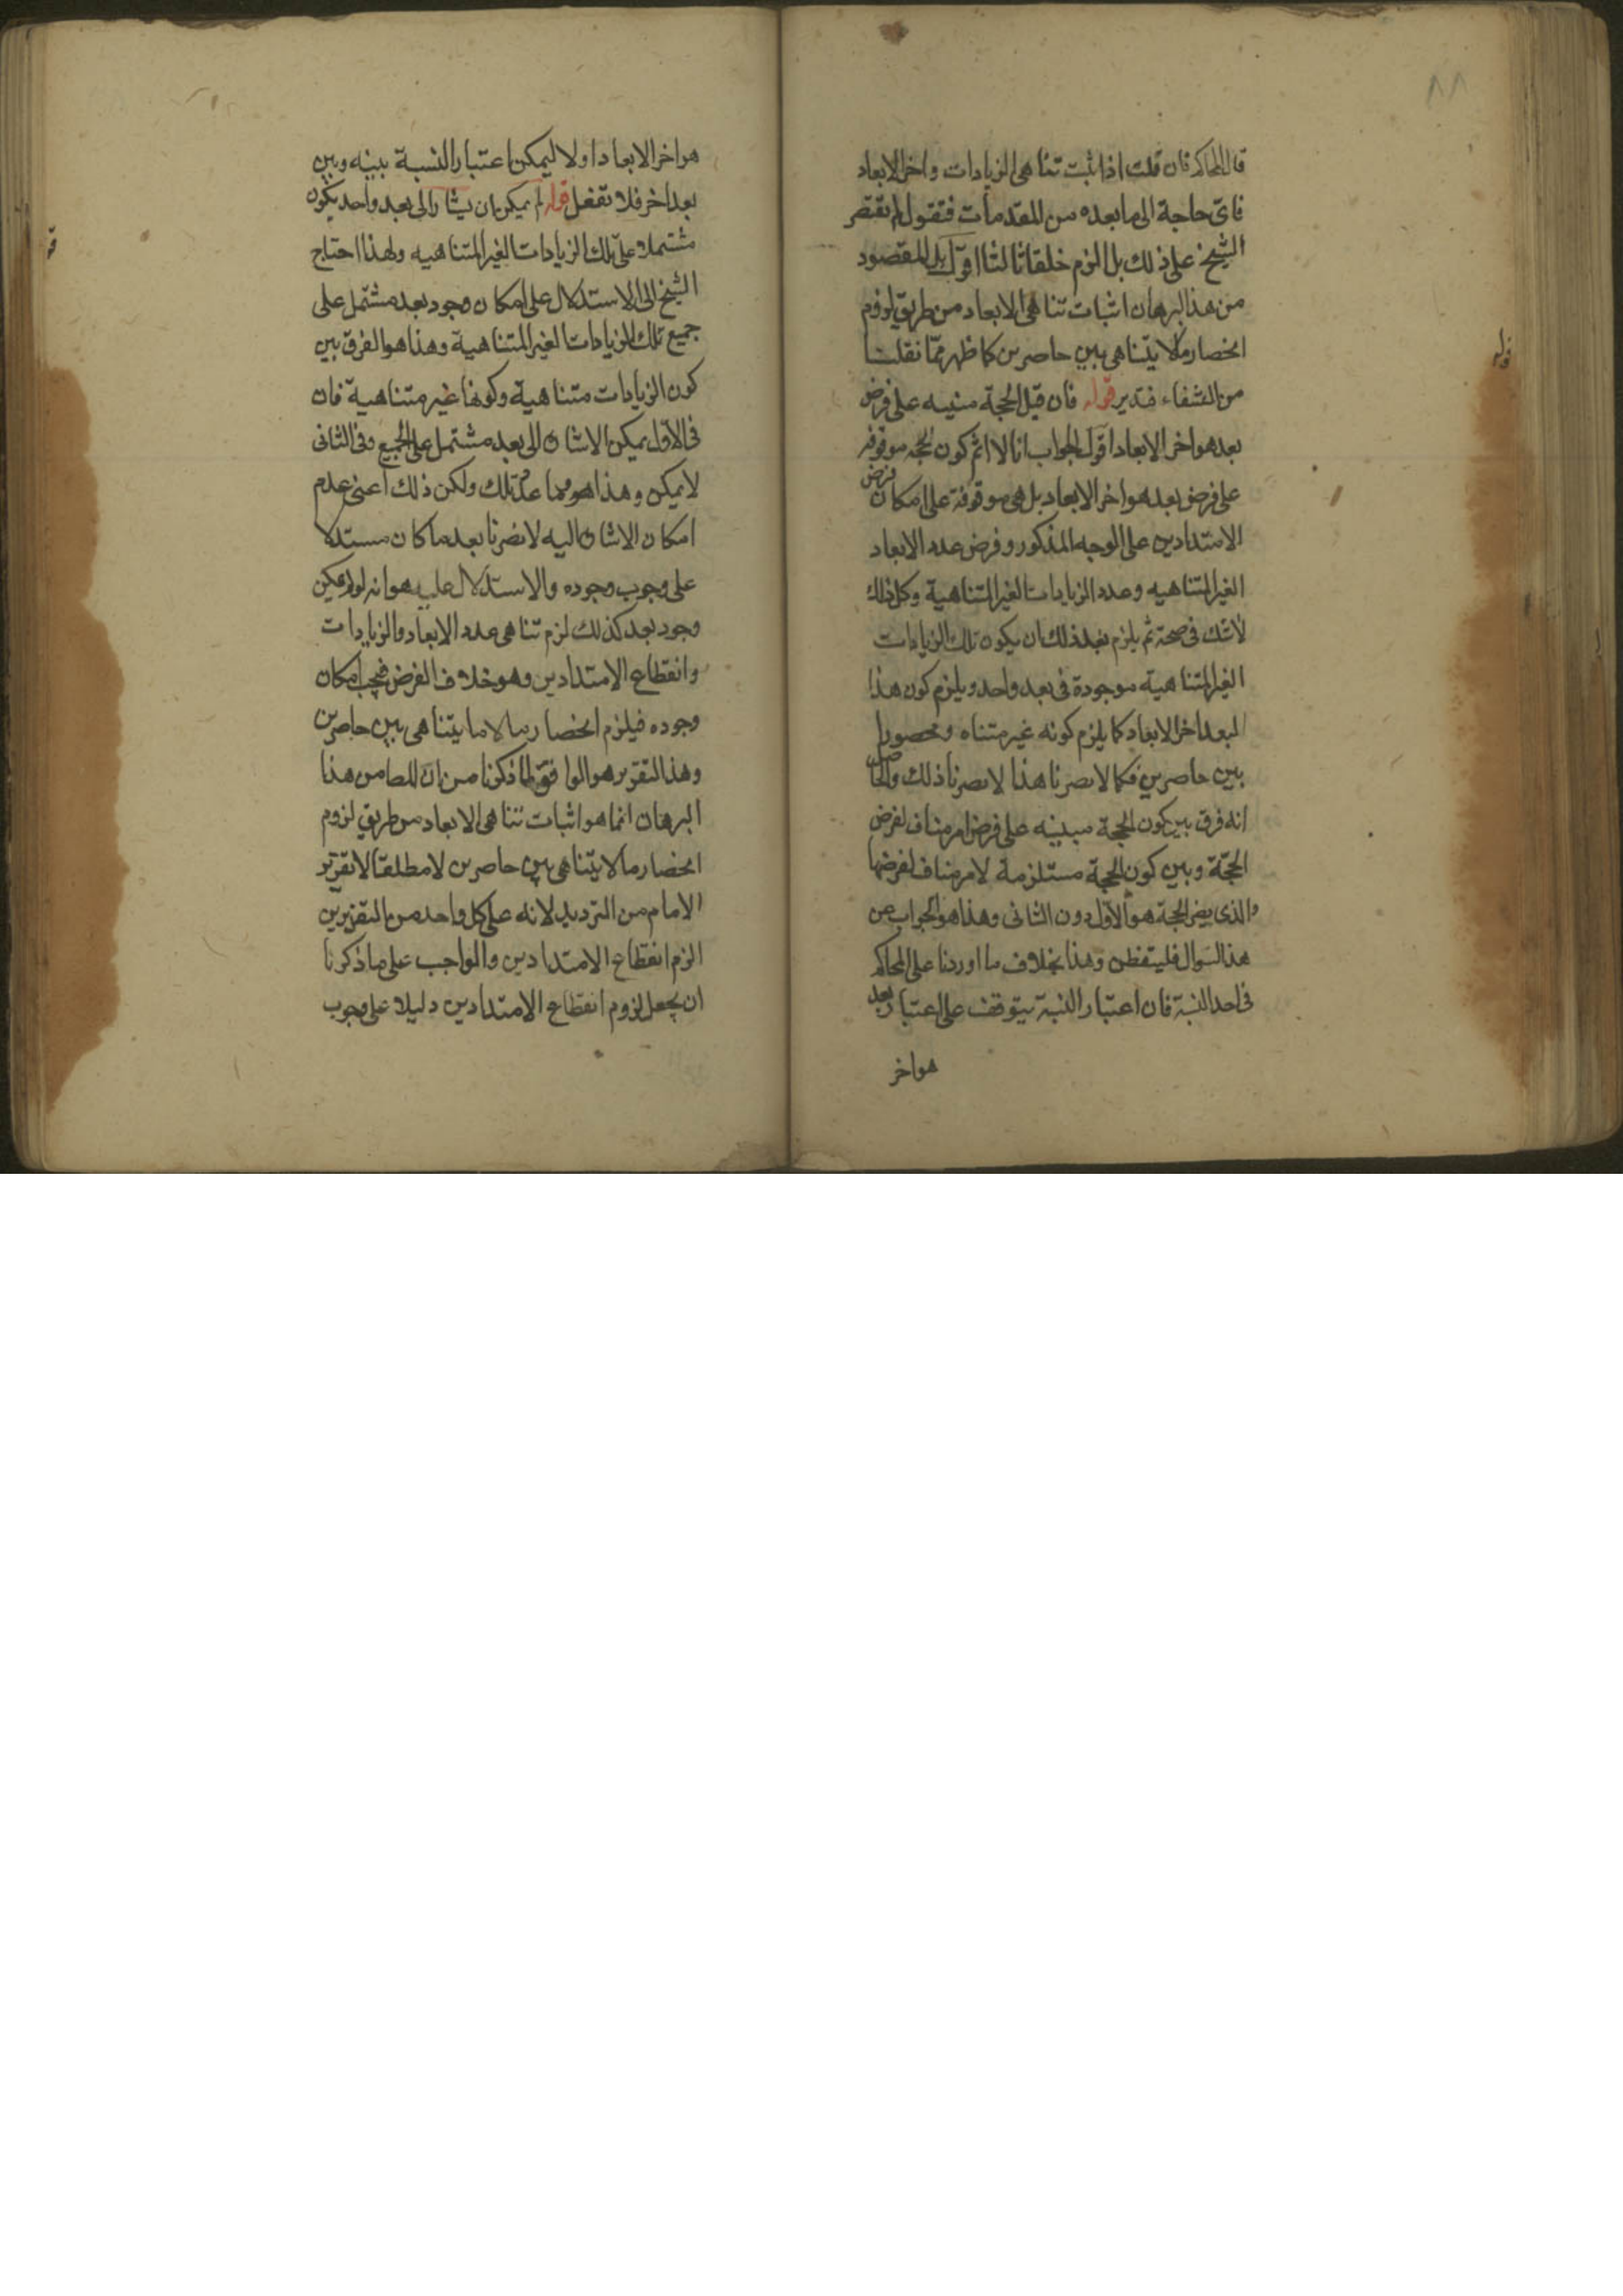 ٨٨
قال المحاكم فان قلت اذا ثبت تناهى الزيادات واخر الابعاد
فاى حاجة الى ما بعده من المقدمات فنقول لم يقتصر
الشيخ على ذلك بل الزم خلفا ثالثا اقول بل المقصود
من هذا البرهان اثبات تناهى الابعاد من طريق لزوم
انحصار ما لا يتناهى بين حاصرين كما ظهر ممّا نقلنا
من الشفاء فتدبر قوله فان قيل الحجة مبنيه على فرض
بعد هو اخر الابعاد اقول الجواب انا لا انم كون الحجه موقوفه
على فرض بعد هو اخر الابعاد بل هى موقوفة على امكان فرض
الامتدادين على الوجه المذكور وفرض عدد الابعاد
الغير المتناهيه وعدد الزيادات الغير المتناهية وكل ذلك
لا شك فى صحته ثم يلزم بعد ذلك ان يكون تلك الزيادات
الغير المتناهية موجودة فى بعد واحد ويلزم كون هذا
البعد اخر الابعاد كما يلزم كونه غير متناه ومحصورا
بين حاصرين فكما لا يضرنا هذا لا يضرنا ذلك والحاصل
انه فرق بين كون الحجة مبينيه على فرض امر مناف لفرض
الحجّة وبين كون الحجة مستلزمة لامر مناف لفرضها
والذى يضر الحجة هو الاول دون الثانى وهذا هو الجواب عن
هذا السوال فليتفطن وهذا بخلاف ما اوردنا على المحاكم
فى احد النسبة فان اعتبار النسبة يتوقف على اعتبار بعد
هو اخر
قوله
هو اخر الابعاد اولا ليمكن اعتبار النسبة بينه وبين
بعد اخر فلا تغفل قوله لم يمكن ان يشار الى بعد واحد يكون
مشتملا على تلك الزيادات الغير المتناهيه ولهذا احتاج
الشيخ الى الاستدلال على امكان وجود بعد مشتمل على
جميع تلك الزيادات الغير المتناهية وهذا هو الفرق بين
كون الزيادات متناهية وكونها غير متناهية فان
فى الاول يمكن الاشارة الى بعد مشتمل على الجميع وفى الثانى
لا يمكن وهذا هو مما عدّ تلك ولكن ذلك اعنى عدم
امكان الاشارة اليه لا يضرنا بعد ما كان مستدلا
على وجوب وجوده والاستدلال عليه هو انه لو لم يمكن
وجود بعد كذلك لزم تناهى عدد الابعاد والزيادات
وانقطاع الامتدادين وهو خلاف الفرض فيجب امكان
وجوده فيلزم انحصار ما لا ما يتناهى بين حاصرين
وهذا التقرير هو الموافق لما ذكرنا من ان المط من هذا
البرهان انما هو اثبات تناهى الابعاد من طريق لزوم
انحصار ما لا يتناهى بين حاصرين لا مطلقا لا تقرير
الامام من الترديد لانه على كل واحد من التقريرين
الزم انقطاع الامتدادين والواجب على ما ذكرنا
ان يجعل لزوم انقطاع الامتدادين دليلا على وجوب